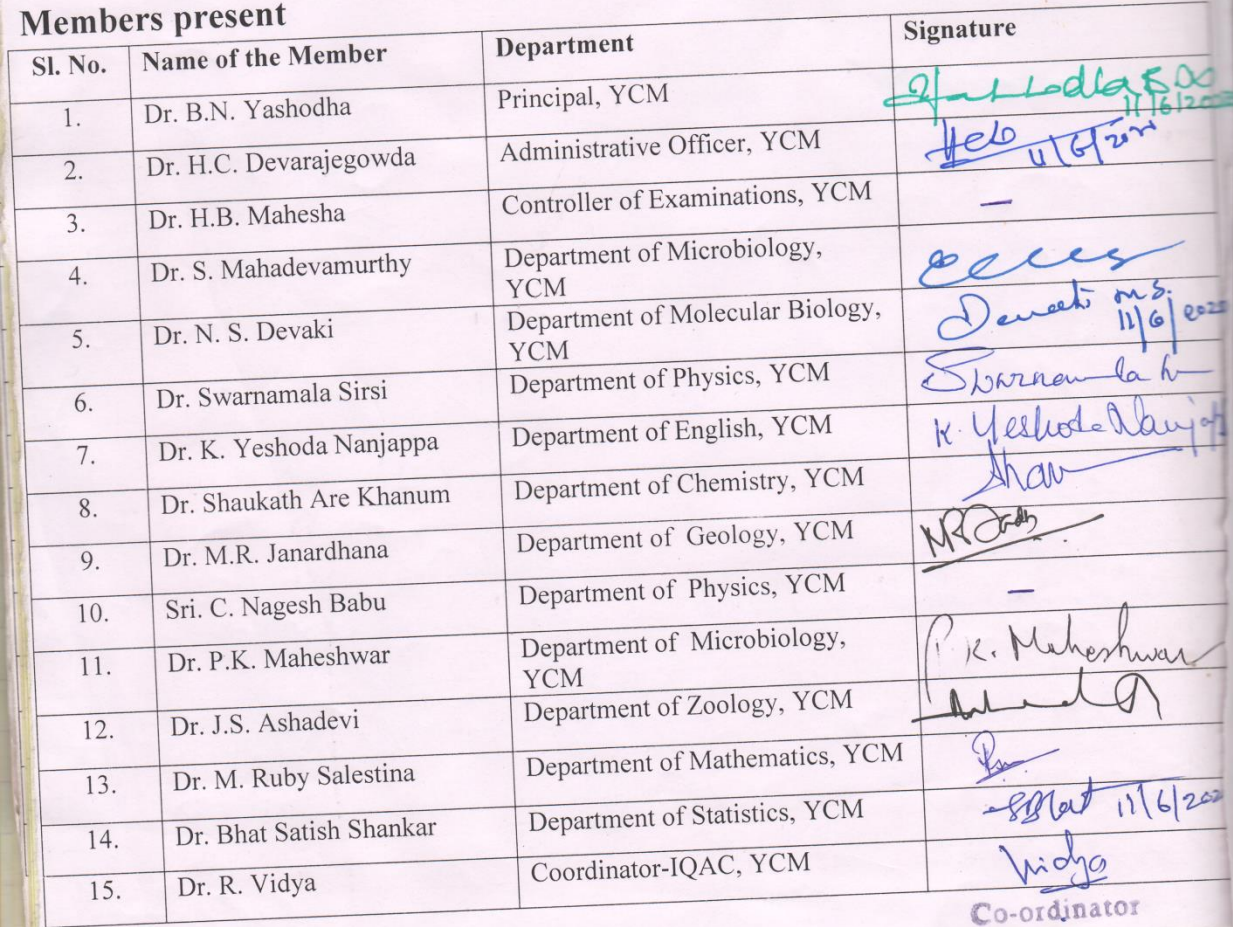 Members present
Sl. No. Name of the Member Department Signature
1. Dr. B.N. Yashodha Principal, YCM
11/6/202
2. Dr. H.C. Devarajegowda Administrative Officer, YCM
11/6/20
3. Dr. H.B. Mahesha Controller of Examinations, YCM –
4. Dr. S. Mahadevamurthy Department of Microbiology,
YCM
5. Dr. N. S. Devaki Department of Molecular Biology, Devaki N.S.
YCM 11/6/2020
6. Dr. Swarnamala Sirsi Department of Physics, YCM Swarnamala
7. Dr. K. Yeshoda Nanjappa Department of English, YCM K. Yeshoda Nanjap
8. Dr. Shaukath Are Khanum Department of Chemistry, YCM
9. Dr. M.R. Janardhana Department of Geology, YCM
10. Sri. C. Nagesh Babu Department of Physics, YCM –
11. Dr. P.K. Maheshwar Department of Microbiology, P.K. Maheshwar
YCM
12. Dr. J.S. Ashadevi Department of Zoology, YCM
13. Dr. M. Ruby Salestina Department of Mathematics, YCM
14. Dr. Bhat Satish Shankar Department of Statistics, YCM 11/6/202
15. Dr. R. Vidya Coordinator-IQAC, YCM Vidya
Co-ordinator